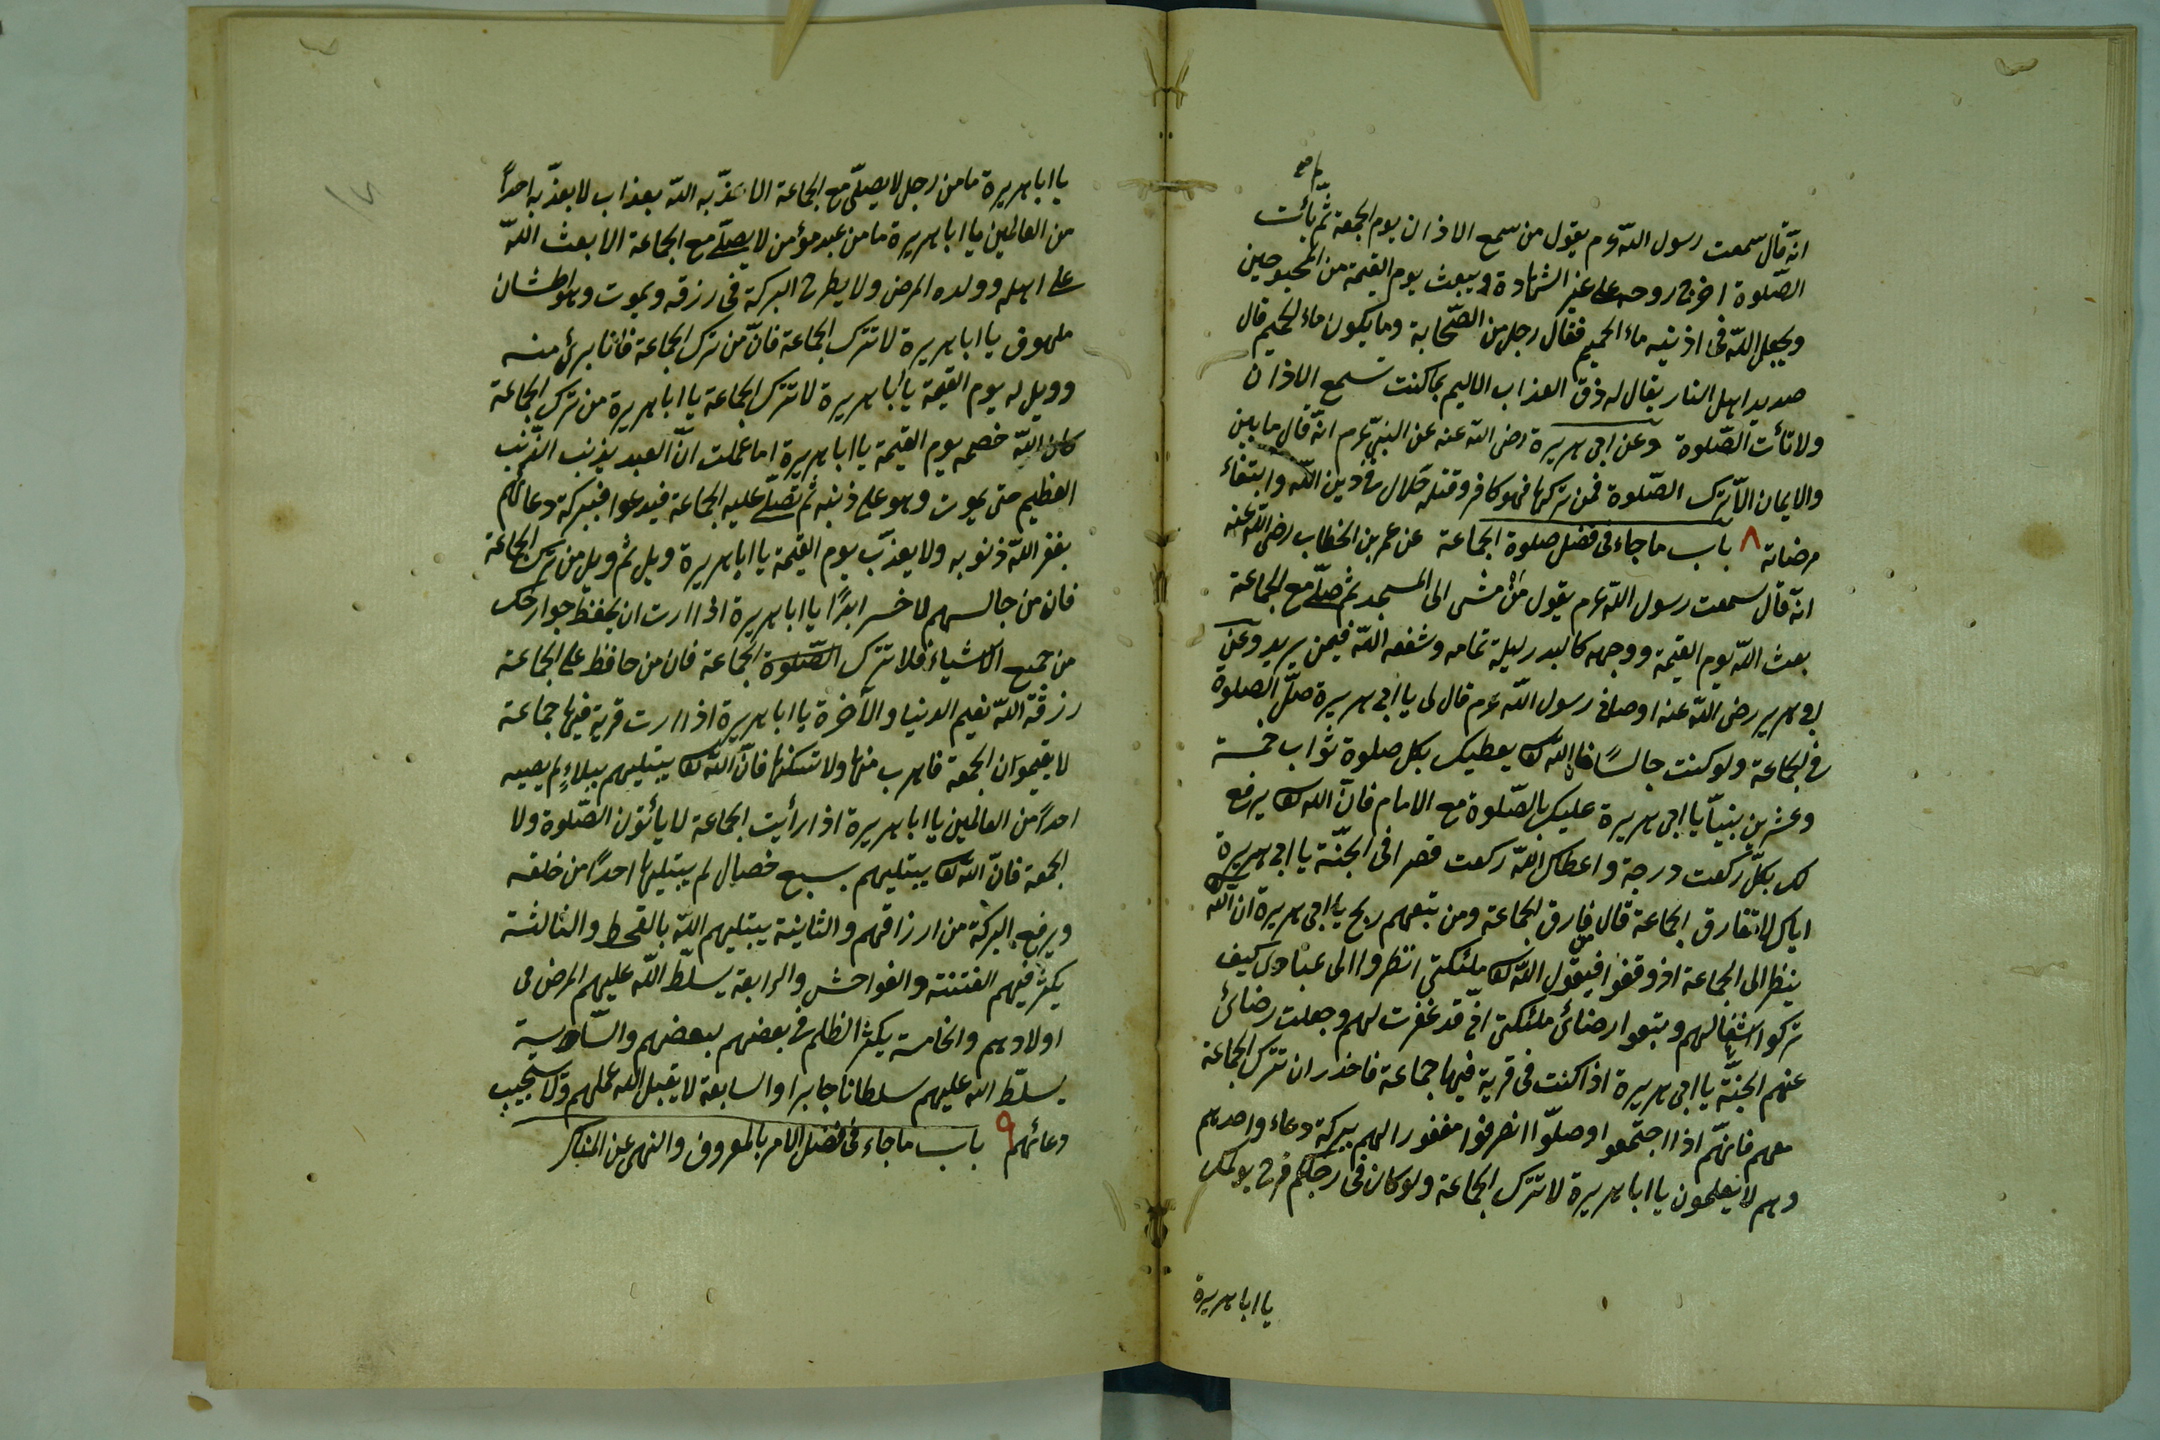 انه قال سمعت رسول الله عم يقول من سمع الاذان يوم الجمعة ثم يأت
الصلوة اخرج روحه على غير الشهادة ويبعث يوم القيمة من
ويجعل الله فى اذنيه ماء الحميم فقال رجل من الصحابة وما يكون ماء الحميم قال
صديد اهل النار يقال له ذق العذاب الاليم بما كنت تسمع الاذان
ولا تأت الصلوة وعن ابى هريرة رضى الله عنه عن النبى عم انه قال ما بين
والايمان الا ترك الصلوة فمن تركها فهو كافر وقتله حلال فى دين الله وابتغاء
مرضاته ٨ باب ما جاء فى فضل صلوة الجماعة عن عمر بن الخطاب رضى الله عنه
انه قال سمعت رسول الله عم يقول من مشى الى المسجد ثم صلى مع الجماعة
بعث الله يوم القيمة ووجهه كالبدر ليلة تمامه وشفعه الله فيمن يريد وعن
ابى هرير رضى الله عنه اوصانى رسول الله عم قال لى يا ابى هريرة صل الصلوة
فى الجماعة ولو كنت جالسا فان الله تعالى يعطيك بكل صلوة ثواب خمسة
وعشرين نبيا يا ابى هريرة عليك بالصلوة مع الامام فان الله تعالى يرفع
لك بكل ركعت درجة واعطاك الله ركعت قصرا فى الجنة يا ابى هريرة
اياك لا تفارق الجماعة قال فارق الجماعة ومن تبعهم ربح يا ابى هريرة ان الله
ينظر الى الجماعة اذ وقفوا فيقول الله تعالى ملئكتى انظروا الى عبادى كيف
تركوا اشغالهم وتبعوا رضائى ملئكتى انى قد غفرت لهم وجعلت رضائى
عنهم الجنة يا ابى هريرة اذا كنت فى قرية فيها جماعة فاحذر ان تترك الجماعة
معهم فانهم اذا اجتمعوا وصلوا انصرفوا مغفورا لهم ببركة دعاء واحدهم
وهم لا يعلمون يا ابا هريرة لا تترك الجماعة ولو كان فى رجلك
يا ابا هريرة
يا ابا هريرة ما من رجل لا يصلى مع الجماعة الا عذبه الله بعذاب لا يعذبه احدا
من العالمين يا ابا هريرة ما من عبد مؤمن لا يصلى مع الجماعة الا بعث الله
على اهله وولده المرض ولا يطرح البركة فى رزقه ويموت وهو عطشان
ملهوف يا ابا هريرة لا تترك الجماعة فان من ترك الجماعة فانا برئ منه
وويل له يوم القيمة يا ابا هريرة لا تترك الجماعة يا ابا هريرة من ترك الجماعة
كان الله خصمه يوم القيمة يا ابا هريرة اما علمت ان العبد يذنب الذنب
العظيم حتى يموت وهو على ذنبه ثم تصلى عليه الجماعة فيدعوا فببركة دعائهم
يغفر الله ذنوبه ولا يعذب يوم القيمة يا ابا هريرة ويل ثم ويل من ترك الجماعة
فان من جالسهم لا خسر ابدا يا ابا هريرة اذا اردت ان يحفظ جوارحك
من جميع الاشياء فلا تترك الصلوة الجماعة فان من حافظ على الجماعة
رزقه الله نعيم الدنيا والآخرة يا ابا هريرة اذا اردت قرية فيها جماعة
لا يقيموان الجمعة فاهرب منها ولا تسكنها فان الله تعالى يبتليهم ببلاء لم يصيبه
احدا من العالمين يا ابا هريرة اذا رأيت الجماعة لا يأتون الصلوة ولا
الجمعة فان الله تعالى يبتليهم بسبع خصال لم يبتليها احدا من خلقه
ويرفع البركة من ارزاقهم والثانية يبتليهم الله بالقحط والثالثة
يكثر فيهم الفتنة والفواحش والرابعة يسلط الله عليهم المرض فى
اولادهم والخامسة يكثر الظلم فى بعضهم لبعضهم والسادسة
يسلط الله عليهم سلطانا جابرا والسابعة لا يقبل الله عملهم ولا يستجيب
دعائهم ٩ باب ما جاء فى فضل الامر بالمعروف والنهى عن المنكر